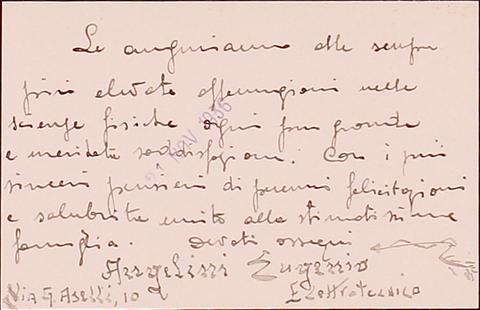 Le auguriamo alle sempre
più elevate affermazioni nelle
scienze fisiche ogni più grande
e meritate soddisfazioni. Con i più
sinceri pensieri di perenni felicitazioni
e salubrità unito alla stimatissima
famiglia. Devoti ossequi
Angelini Eugenio
Via G. Aselli, 10 Elettrotecnico